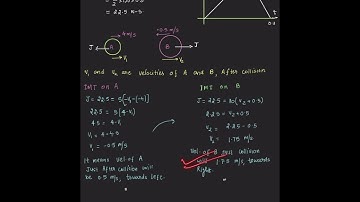 = 22.5 N-s
t
0.2
4 m/s
0.5 m/s
J
A
B
J
V₁
V₂
V₁ and V₂ are velocities of A and B, After collision
IMT on A
J = 22.5 = 5[-V₁-(-4)]
22.5 = 5[4-V₁]
4.5 = 4-V₁
V₁ = 4-4.5
V₁ = -0.5 m/s
It means vel of A
Just After collision will
be 0.5 m/s, towards left.
IMT on B
J = 22.5 = 10(V₂+0.5)
2.25 = V₂+0.5
V₂ = 2.25-0.5
V₂ = 1.75 m/s
Vel of B after collision
will 1.75 m/s, towards
Right.